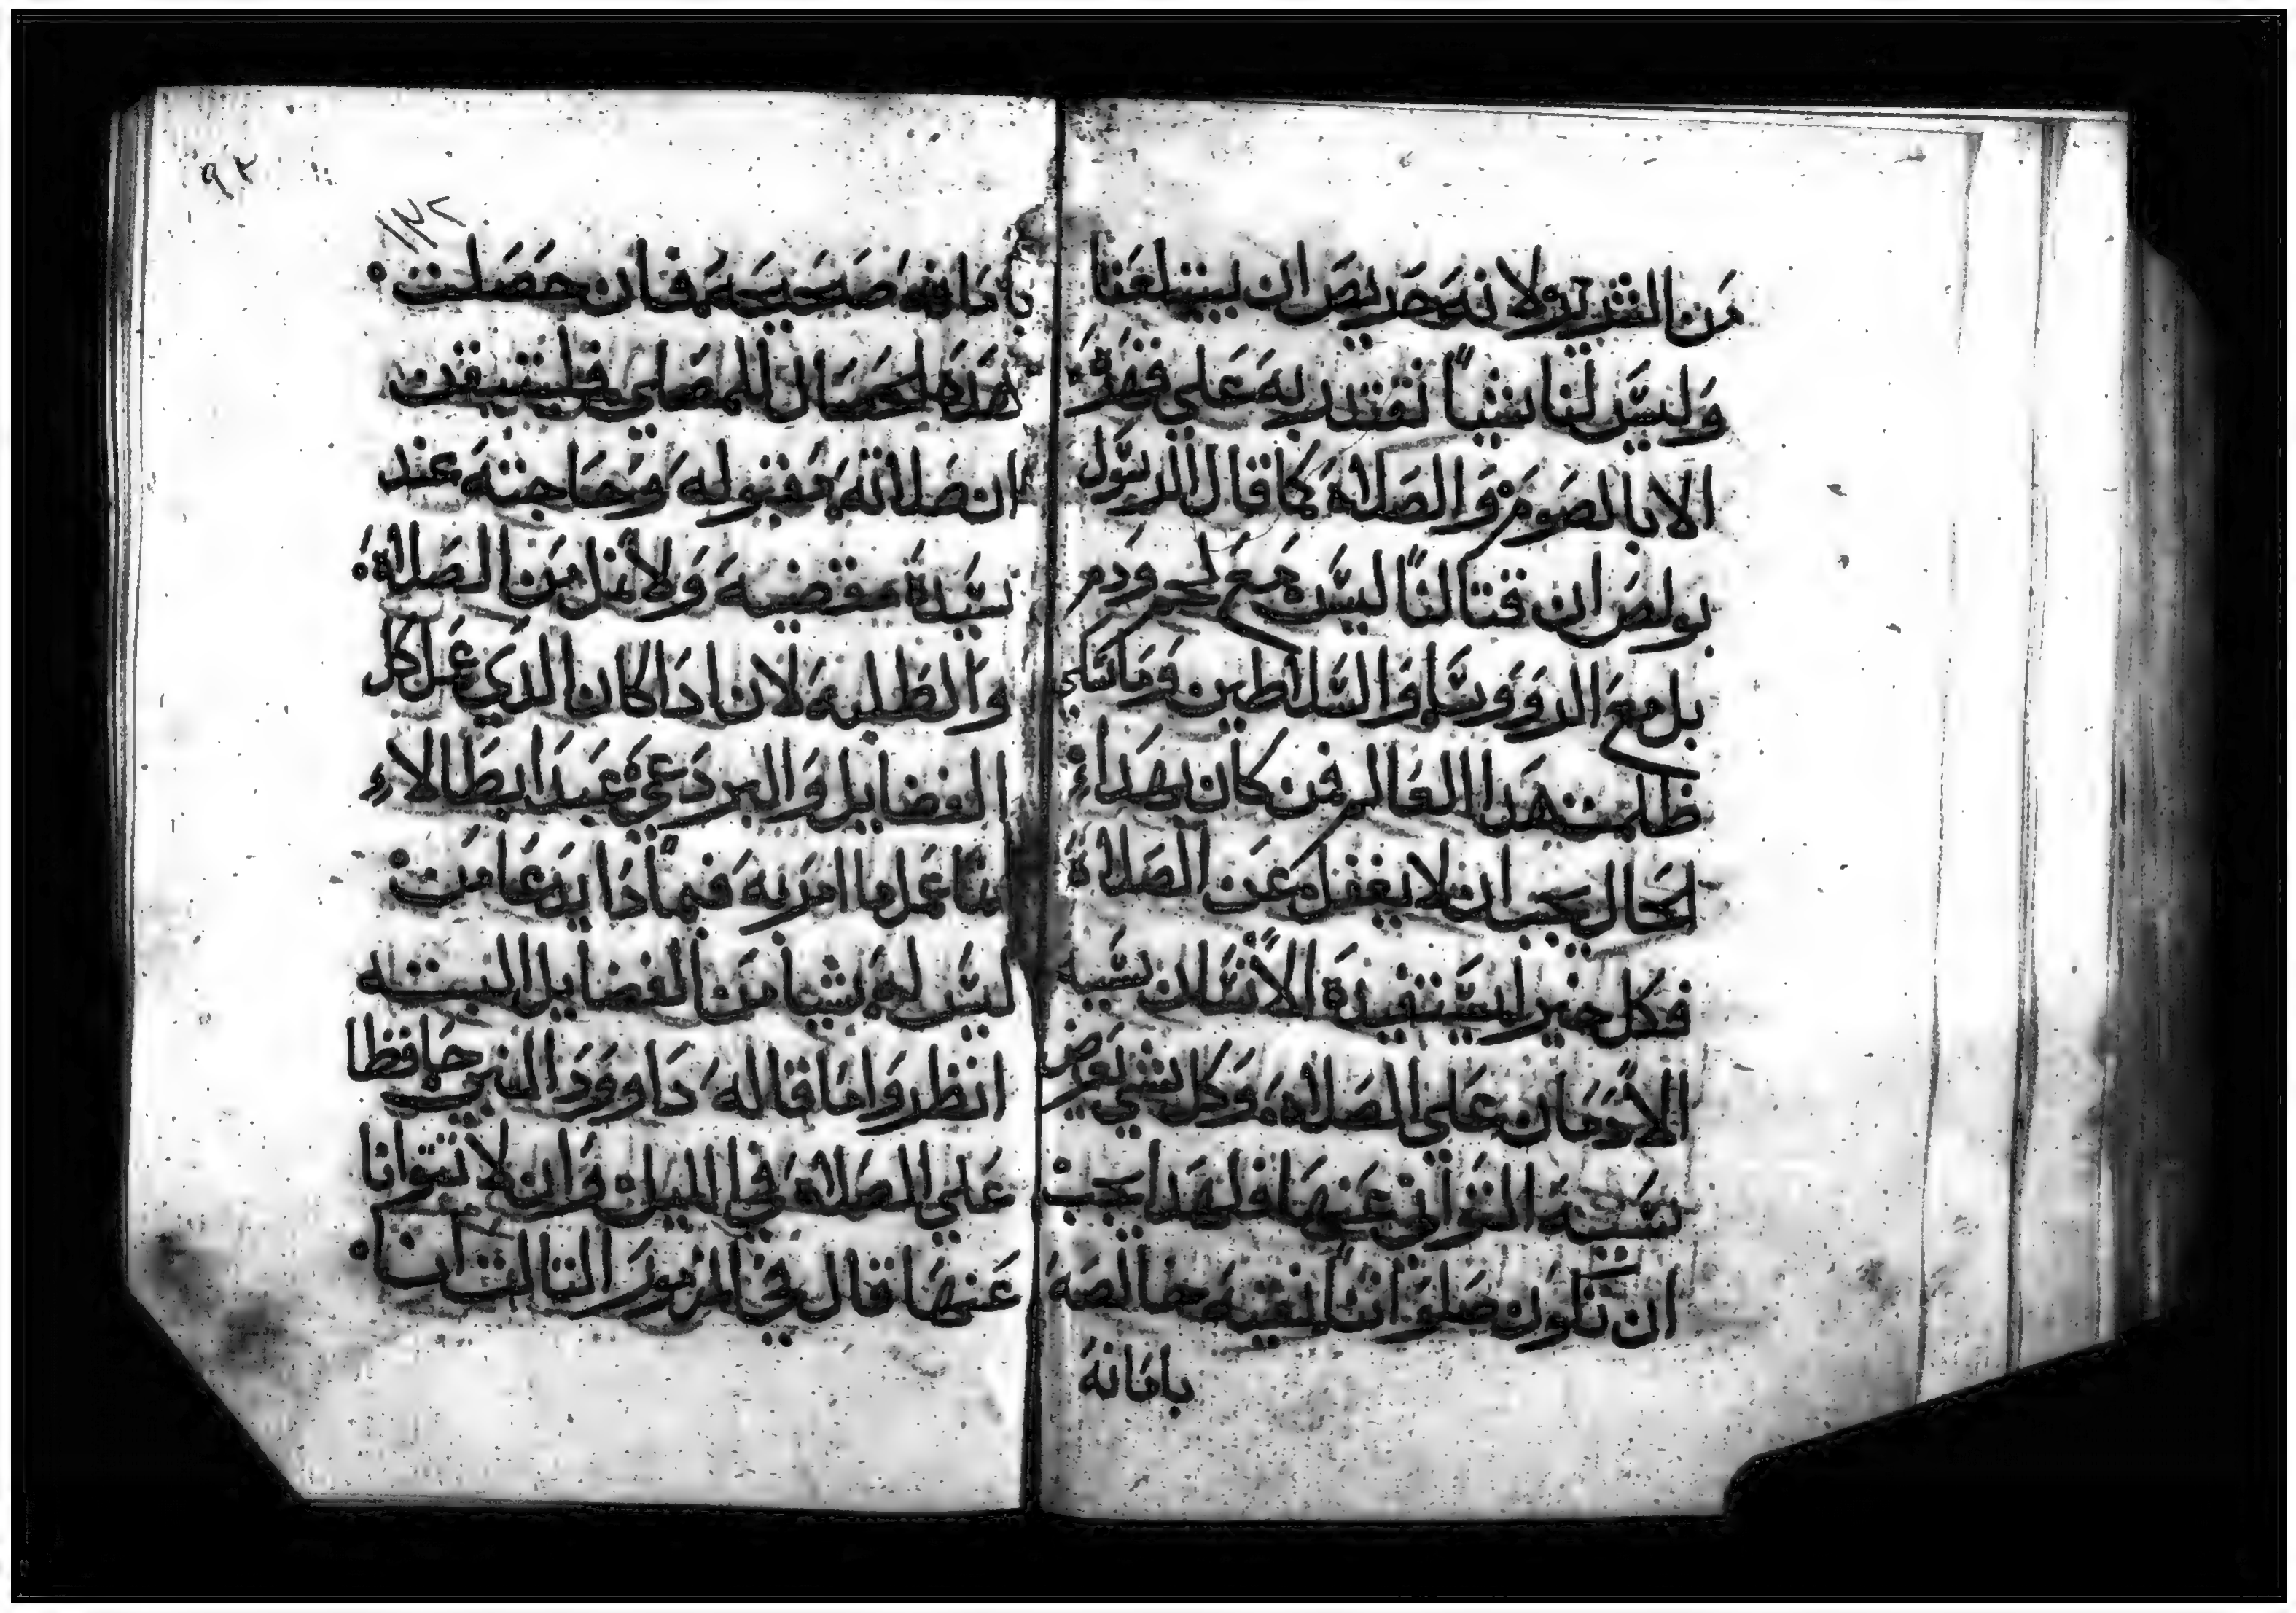 من الشرير ولانه حريص ان يبتلعنا
وليس لنا شياً نقتدر به على قهره
الا بالصوم والصلاه كما قال الرسول
بولص ان قتالنا ليس مع لحم ودم
بل مع الروؤسا والسلاطين وماسكي
ظلمت هدا العالم فمن كان بهدا
الحال يجب ان لا يغفل عن الصلاة
فكل خير يستفيدة الانسان سببه
الادمان على الصلاة وكل شي يعرض
سببه التواني عنها فلهدا يجب
ان تكون صلواتنا نقيه خالصه
بامانه
بامانه صحيحه فان حصلت
هده الخصال للمصلي فليتيقن
ان صلاته مقبوله وحاجته عند
سيدة مقضيه ولا نمل من الصلاة
والطلبه لان ادا كان الدي عمل كل
الفضايل والبر دعي عبدا بطالاً
انما عمل ما امر به فبمادا يدعا من
ليس له شيا من الفضايل البتته
انظروا ما قاله داوود النبي حافظا
على الصلاه في الليل وان لا نتوانا
عنها قال في المزمور التالت ان
٩٢
١٣٢